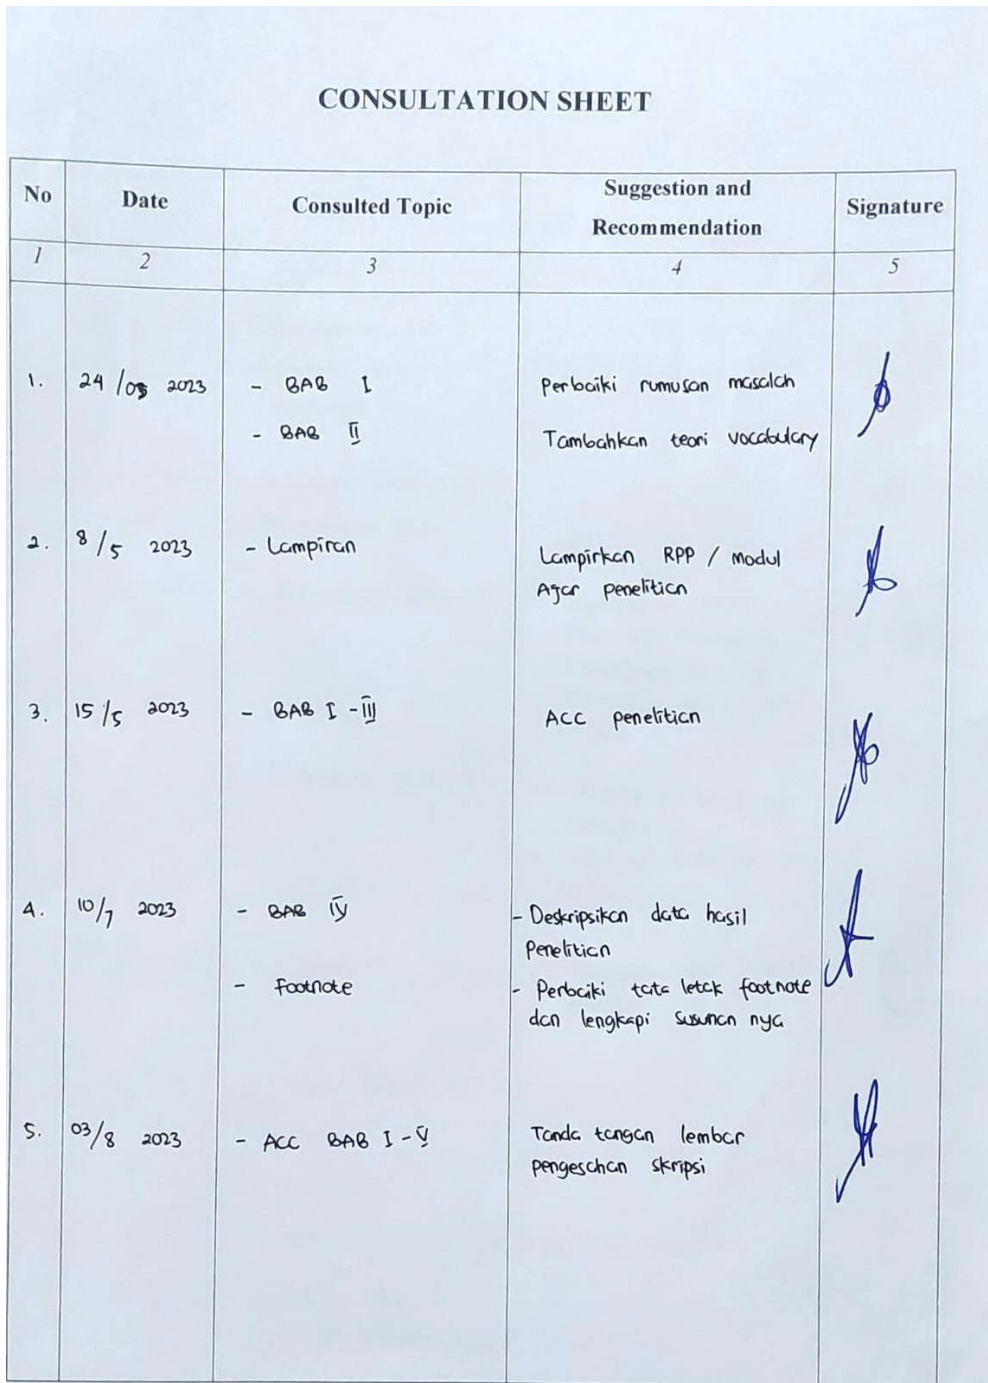 CONSULTATION SHEET
No Date Consulted Topic Suggestion and Recommendation Signature
1 2 3 4 5
1. 24/03 2023 - BAB I Perbaiki rumusan masalah
- BAB II Tambahkan teori vocabulary
2. 8/5 2023 - Lampiran Lampirkan RPP / Modul
Ajar penelitian
3. 15/5 2023 - BAB I - III ACC penelitian
4. 10/7 2023 - BAB IV - Deskripsikan data hasil
Penelitian
- Footnote - Perbaiki tata letak footnote
dan lengkapi susunan nya
5. 03/8 2023 - ACC BAB I - V Tanda tangan lembar
pengesahan skripsi